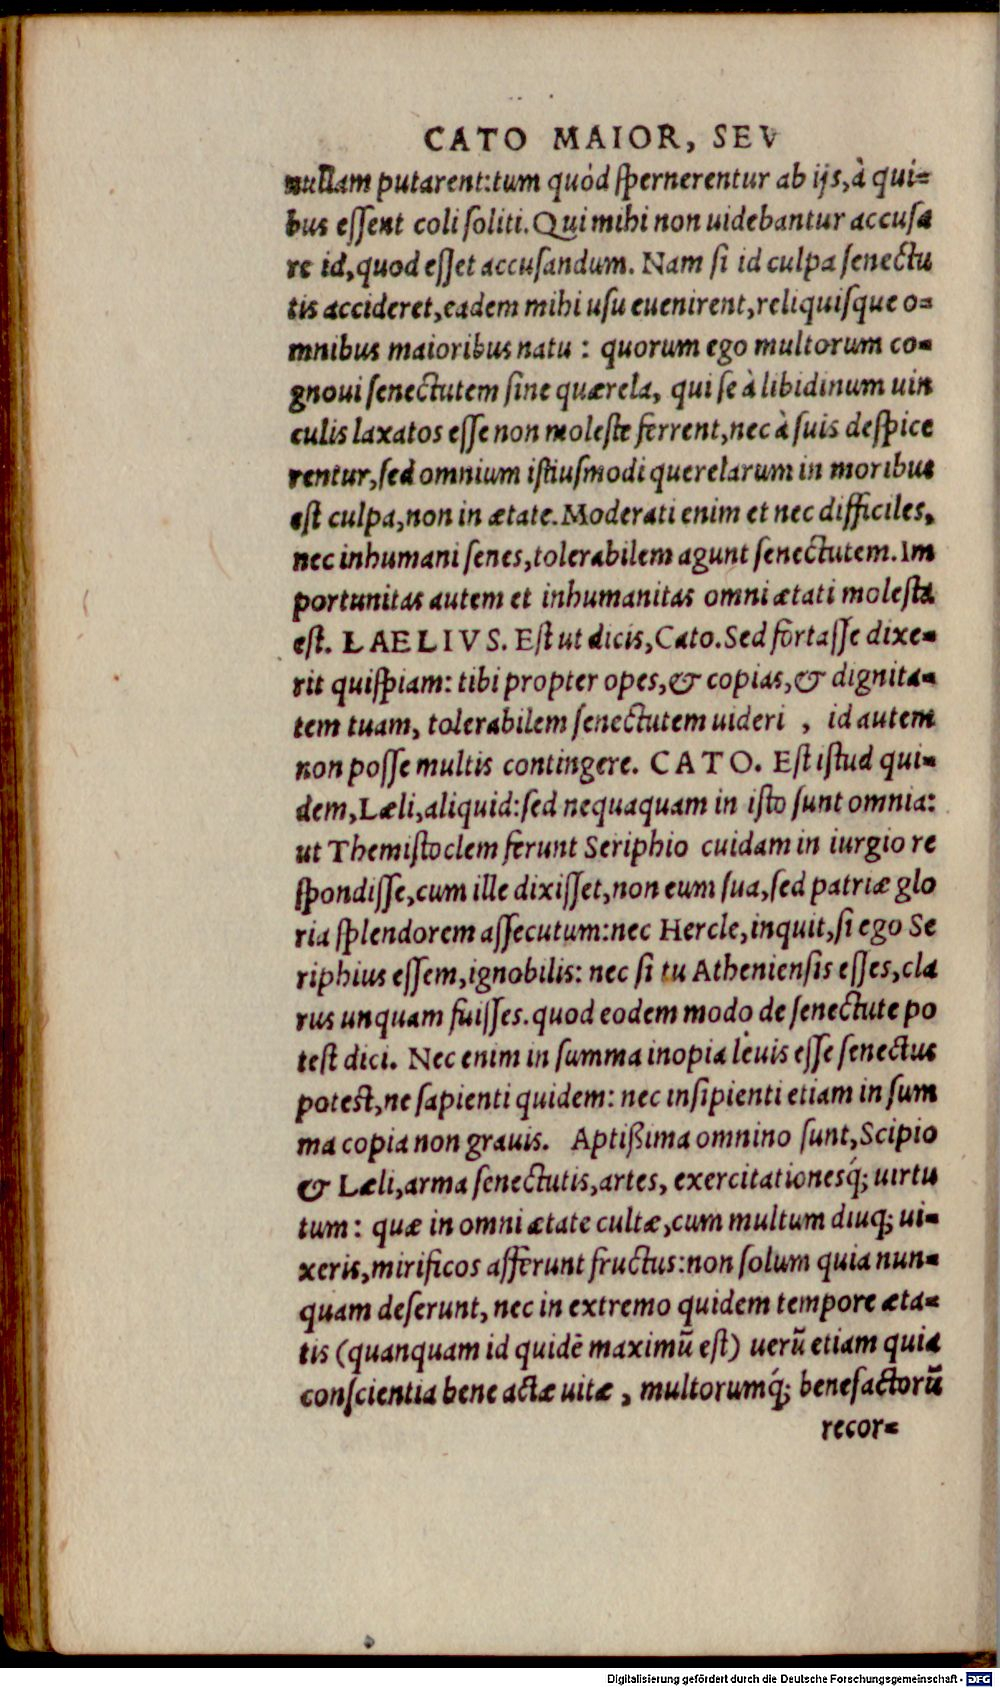 CATO MAIOR, SEV
nullam putarent:tum quòd spernerentur ab ijs,à qui=
bus essent coli soliti. Qui mihi non uidebantur accusa
re id,quod esset accusandum. Nam si id culpa senectu
tis accideret,eadem mihi usu euenirent,reliquisque o=
mnibus maioribus natu : quorum ego multorum co=
gnoui senectutem sine quærela, qui se à libidinum uin
culis laxatos esse non moleste ferrent,nec à suis despice
rentur,sed omnium istiusmodi querelarum in moribus
est culpa,non in ætate. Moderati enim et nec difficiles,
nec inhumani senes,tolerabilem agunt senectutem. Im
portunitas autem et inhumanitas omni ætati molesta
est. LAELIVS. Est ut dicis, Cato. Sed fortasse dixe=
rit quispiam: tibi propter opes,& copias,& dignita=
tem tuam, tolerabilem senectutem uideri , id autem
non posse multis contingere. CATO. Est istud qui=
dem,Læli,aliquid:sed nequaquam in isto sunt omnia:
ut Themistoclem ferunt Seriphio cuidam in iurgio re
spondisse,cum ille dixisset,non eum sua,sed patriæ glo
ria splendorem assecutum:nec Hercle,inquit,si ego Se
riphius essem,ignobilis: nec si tu Atheniensis esses,cla
rus unquam fuisses.quod eodem modo de senectute po
test dici. Nec enim in summa inopia leuis esse senectus
potest,ne sapienti quidem: nec insipienti etiam in sum
ma copia non grauis. Aptißima omnino sunt,Scipio
& Læli,arma senectutis,artes, exercitationesq́; uirtu
tum : quæ in omni ætate cultæ,cum multum diuq; ui=
xeris,mirificos afferunt fructus:non solum quia nun=
quam deserunt, nec in extremo quidem tempore æta=
tis (quanquam id quidē maximū est) uerū etiam quia
conscientia bene actæ uitæ , multorumq́; benefactorū
recor=
Digitalisierung gefördert durch die Deutsche Forschungsgemeinschaft - DFG